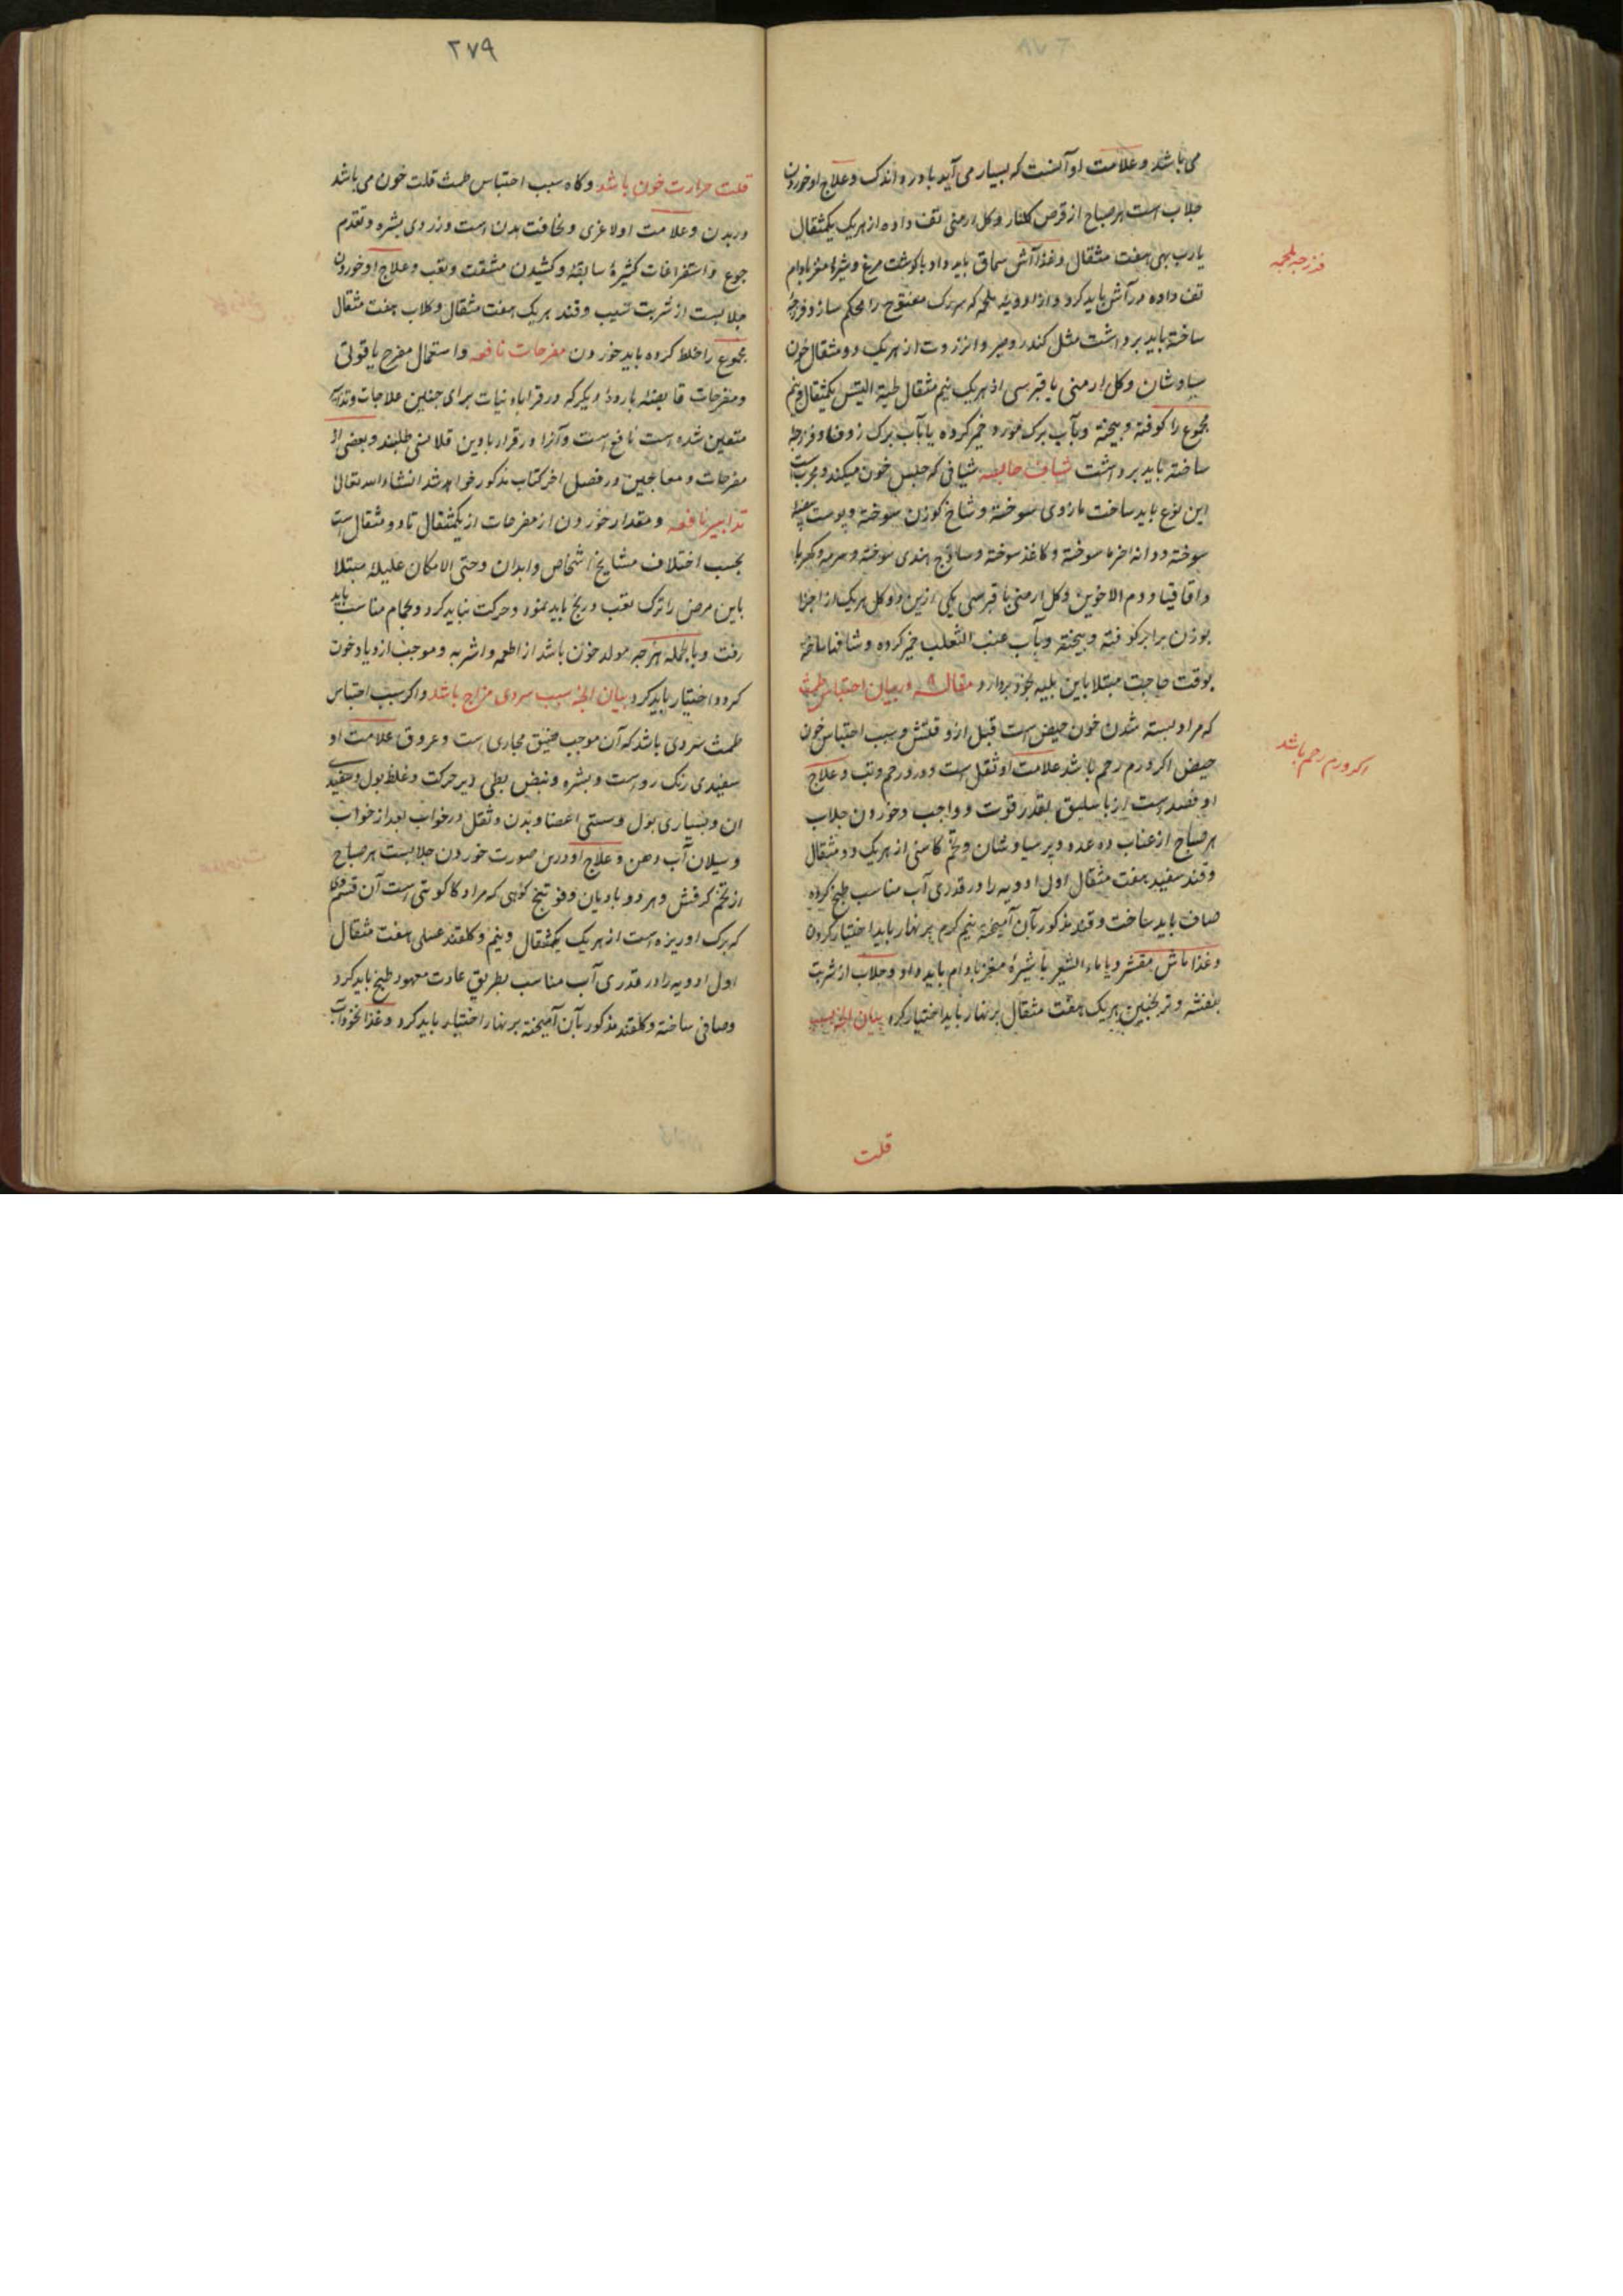 می باشد و علامت او آنست که بسیار می آید با درد اندک و علاج او خوردن
جلاب است هر صباح از قرص کلنار و کل ارمنی تفت داده از هر یک یکمثقال
یا رب بهی هفت مثقال و غذا آش سماق باید داد با کوشت مرغ و شیرهٔ مغز بادام
تفت داده در آش باید کرد و از ادویهٔ ملحمه که سرک مفتوح را محکم سازد فرزجه
ساخته باید برداشت مثل کندر و صبر و انزروت از هر یک دو مثقال خون
سیاوشان و کل ارمنی یا قبرسی از هر یک نیم مثقال لحیة التیس یکمثقال و نیم
مجموع را کوفته و بیخته و بآب برک مورد خمیر کرده یا بآب برک زوفا و فرزجه
ساخته باید برداشت شیاف حابسه شیافی که حبس خون میکند و مجربست
این نوع باید ساخت مازوی سوخته و شاخ کوزن سوخته و پوست بیضه
سوخته و دانه خرما سوخته و کاغذ سوخته و ساذج هندی سوخته و سرمه و کهربا
و اقاقیا و دم الاخوین و کل ارمنی یا قبرسی یکی ازین دو کل هر یک از اجزا
بوزن برابر کوفته و بیخته و بآب عنب الثعلب خمیر کرده و شافها ساخته
بوقت حاجت مبتلا باین بلیه بخود بردارد مقاله ۹ در بیان احتباس طمث
که مراد بسته شدن خون حیض است قبل از وقتش و سبب احتباس خون
حیض اکر ورم رحم باشد علامت او ثقل است و درد رحم و تب و علاج
او فصد است از باسلیق بقدر قوت و واجب و خوردن جلاب
هر صباح از عناب ده عدد و پر سیاوشان و تخم کاسنی از هر یک دو مثقال
و قند سفید هفت مثقال اول ادویه را در قدری آب مناسب طبخ کرده
صاف باید ساخت و قند مذکور بآن آمیخته نیم کرم بر نهار باید اختیار کردن
و غذا ماش مقشر و یا ماء الشعیر با شیرهٔ مغز بادام باید داد و جلاب از شربت
بنفشه و ترنجبین هر یک هفت مثقال بر نهار باید اختیار کرد بیان آنچه سبب
فرزجه ملحمه
اکر ورم رحم باشد
قلت
۲۷۹
قلت حرارت خون باشد و کاه سبب احتباس طمث قلت خون می باشد
در بدن و علامت او لاغری و نحافت بدن است و زردی بشره و تقدم
جوع و استفراغات کثیرهٔ سابقه و کشیدن مشقت و تعب و علاج او خوردن
جلابست از شربت سیب و قند هر یک هفت مثقال و کلاب هفت مثقال
مجموع را خلط کرده باید خوردن مفرحات نافعه و استعمال مفرح یاقوتی
و مفرحات قابضهٔ بارودهٔ دیکر که در قراباد نیات برای چنین علاجات و تدابیر
متعین شده است نافع است و آنرا در قرابادین قلانسی طلبند و بعضی از
مفرحات و معاجین در فصل اخر کتاب مذکور خواهد شد انشاء الله تعالی
تدابیر نافعه و مقدار خوردن از مفرحات از یکمثقال تا دو مثقال است
بحسب اختلاف مشایخ اشخاص و ابدان و حتی الامکان علیلهٔ مبتلا
باین مرض را ترک تعب و رنج باید نمود و حرکت نباید کرد و بحمام مناسب باید
رفت و بالجمله هر چه مولد خون باشد از اطعمه و اشربه و موجب ازدیاد خون
کردد اختیار باید کرد بیان آنچه سبب سردی مزاج باشد و اکر سبب احتباس
طمث سردی باشد که آن موجب ضیق مجاری است و عروق علامت او
سفیدی رنک رو است و بشره و نبض بطی دیر حرکت و غلظ بول و سفیدی
ان و بسیاری بول و سستی اعضا و بدن و ثقل در خواب بعد از خواب
و سیلان آب دهن و علاج او درین صورت خوردن جلابست هر صباح
از تخم کرفش و هر دو بادیان و فوتنج کوهی که مراد کاکوتی است آن قسم دی
که برک او ریزه است از هر یک یکمثقال و نیم و کلقند عسلی هفت مثقال
اول ادویه را در قدری آب مناسب بطریق عادت معهود طبخ باید کرد
و صافی ساخته و کلقند مذکور بآن آمیخته بر نهار اختیار باید کرد و غذا نخودآب